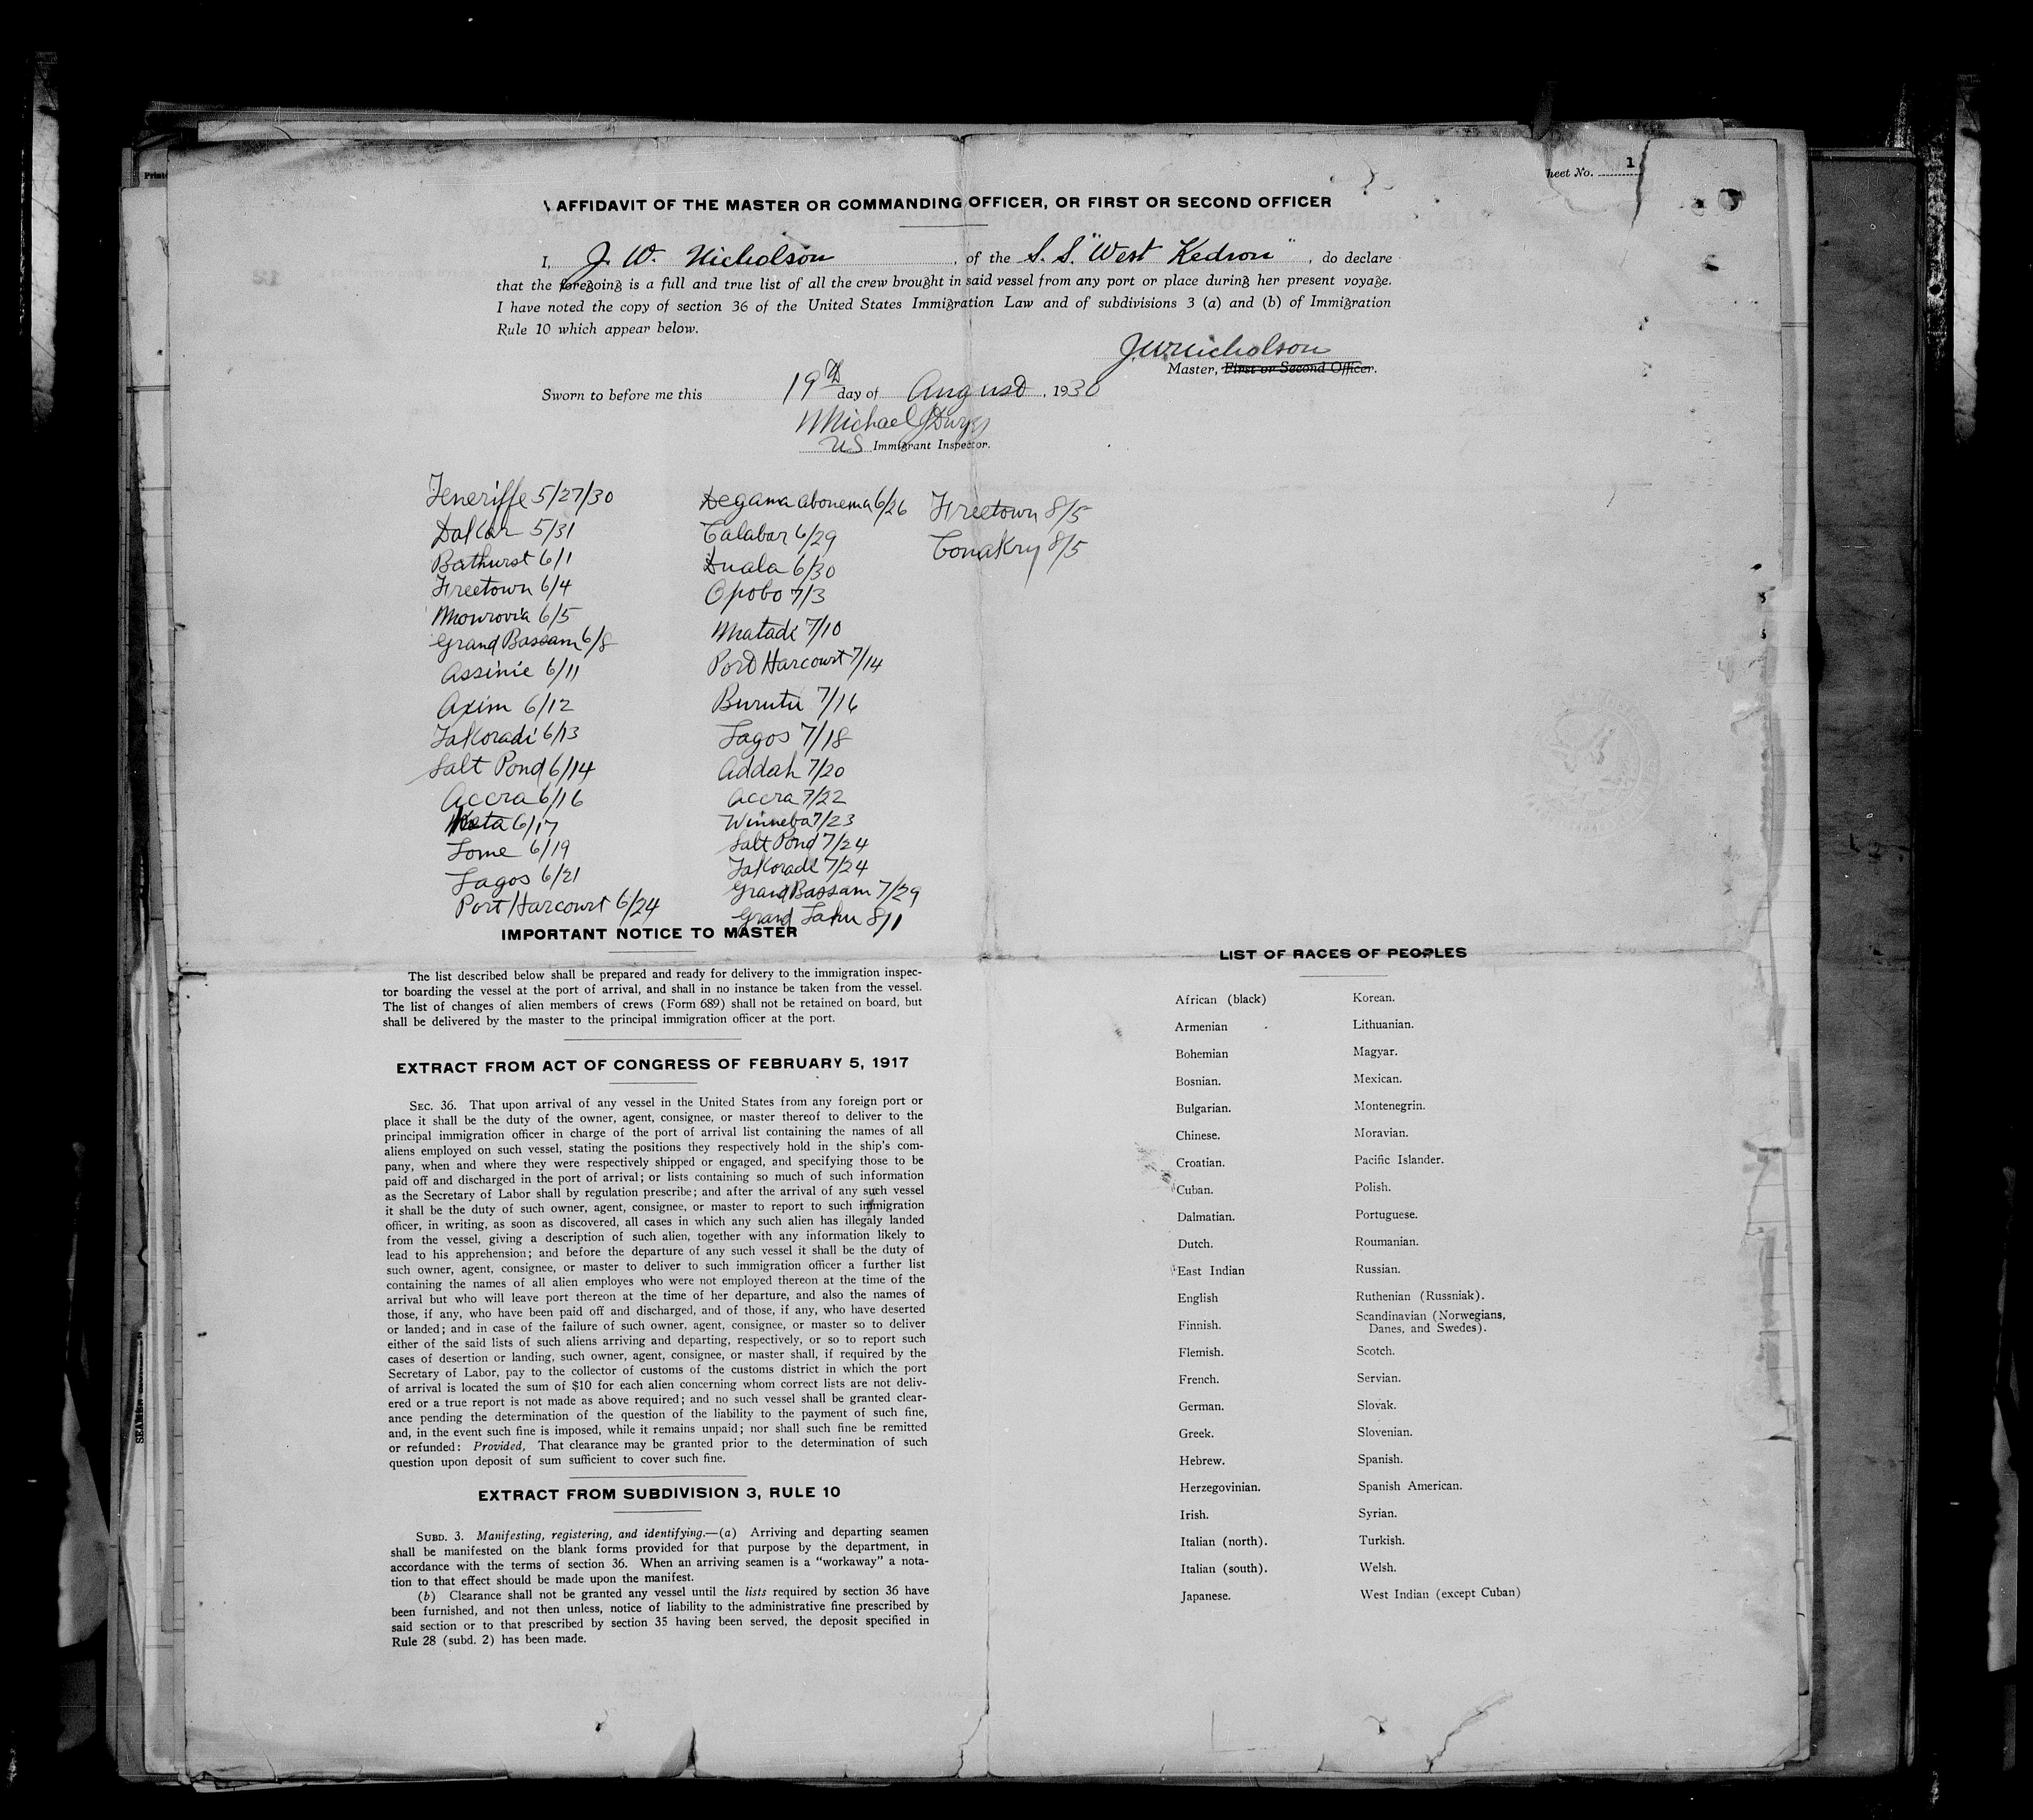 Sheet No. 1
AFFIDAVIT OF THE MASTER OR COMMANDING OFFICER, OR FIRST OR SECOND OFFICER
I, J. W. Nicholson, of the S. S. "West Kedron", do declare
that the foregoing is a full and true list of all the crew brought in said vessel from any port or place during her present voyage.
I have noted the copy of section 36 of the United States Immigration Law and of subdivisions 3 (a) and (b) of Immigration
Rule 10 which appear below.
J W Nicholson
Master, First or Second Officer.
Sworn to before me this 19th day of August, 1930
Michael J Dwyer
US Immigrant Inspector.
Teneriffe 5/27/30
Dakar 5/31
Bathurst 6/1
Freetown 6/4
Monrovia 6/5
Grand Bassam 6/8
Assinie 6/11
Axim 6/12
Takoradi 6/13
Salt Pond 6/14
Accra 6/16
Keta 6/17
Lome 6/19
Lagos 6/21
Port Harcourt 6/24
Degama abonema 6/26
Calabar 6/29
Duala 6/30
Opobo 7/3
Matadi 7/10
Port Harcourt 7/14
Burutu 7/16
Lagos 7/18
Addah 7/20
Accra 7/22
Winneba 7/23
Salt Pond 7/24
Takoradi 7/24
Grand Bassam 7/29
Grand Lahu 8/1
Freetown 8/5
Conakry 8/5
IMPORTANT NOTICE TO MASTER
The list described below shall be prepared and ready for delivery to the immigration inspec-
tor boarding the vessel at the port of arrival, and shall in no instance be taken from the vessel.
The list of changes of alien members of crews (Form 689) shall not be retained on board, but
shall be delivered by the master to the principal immigration officer at the port.
EXTRACT FROM ACT OF CONGRESS OF FEBRUARY 5, 1917
SEC. 36. That upon arrival of any vessel in the United States from any foreign port or
place it shall be the duty of the owner, agent, consignee, or master thereof to deliver to the
principal immigration officer in charge of the port of arrival list containing the names of all
aliens employed on such vessel, stating the positions they respectively hold in the ship's com-
pany, when and where they were respectively shipped or engaged, and specifying those to be
paid off and discharged in the port of arrival; or lists containing so much of such information
as the Secretary of Labor shall by regulation prescribe; and after the arrival of any such vessel
it shall be the duty of such owner, agent, consignee, or master to report to such immigration
officer, in writing, as soon as discovered, all cases in which any such alien has illegaly landed
from the vessel, giving a description of such alien, together with any information likely to
lead to his apprehension; and before the departure of any such vessel it shall be the duty of
such owner, agent, consignee, or master to deliver to such immigration officer a further list
containing the names of all alien employes who were not employed thereon at the time of the
arrival but who will leave port thereon at the time of her departure, and also the names of
those, if any, who have been paid off and discharged, and of those, if any, who have deserted
or landed; and in case of the failure of such owner, agent, consignee, or master so to deliver
either of the said lists of such aliens arriving and departing, respectively, or so to report such
cases of desertion or landing, such owner, agent, consignee, or master shall, if required by the
Secretary of Labor, pay to the collector of customs of the customs district in which the port
of arrival is located the sum of $10 for each alien concerning whom correct lists are not deliv-
ered or a true report is not made as above required; and no such vessel shall be granted clear-
ance pending the determination of the question of the liability to the payment of such fine,
and, in the event such fine is imposed, while it remains unpaid; nor shall such fine be remitted
or refunded: Provided, That clearance may be granted prior to the determination of such
question upon deposit of sum sufficient to cover such fine.
EXTRACT FROM SUBDIVISION 3, RULE 10
SUBD. 3. Manifesting, registering, and identifying.—(a) Arriving and departing seamen
shall be manifested on the blank forms provided for that purpose by the department, in
accordance with the terms of section 36. When an arriving seamen is a "workaway" a nota-
tion to that effect should be made upon the manifest.
(b) Clearance shall not be granted any vessel until the lists required by section 36 have
been furnished, and not then unless, notice of liability to the administrative fine prescribed by
said section or to that prescribed by section 35 having been served, the deposit specified in
Rule 28 (subd. 2) has been made.
LIST OF RACES OF PEOPLES
African (black)
Armenian
Bohemian
Bosnian.
Bulgarian.
Chinese.
Croatian.
Cuban.
Dalmatian.
Dutch.
East Indian
English
Finnish.
Flemish.
French.
German.
Greek.
Hebrew.
Herzegovinian.
Irish.
Italian (north).
Italian (south).
Japanese.
Korean.
Lithuanian.
Magyar.
Mexican.
Montenegrin.
Moravian.
Pacific Islander.
Polish.
Portuguese.
Roumanian.
Russian.
Ruthenian (Russniak).
Scandinavian (Norwegians,
Danes, and Swedes).
Scotch.
Servian.
Slovak.
Slovenian.
Spanish.
Spanish American.
Syrian.
Turkish.
Welsh.
West Indian (except Cuban)